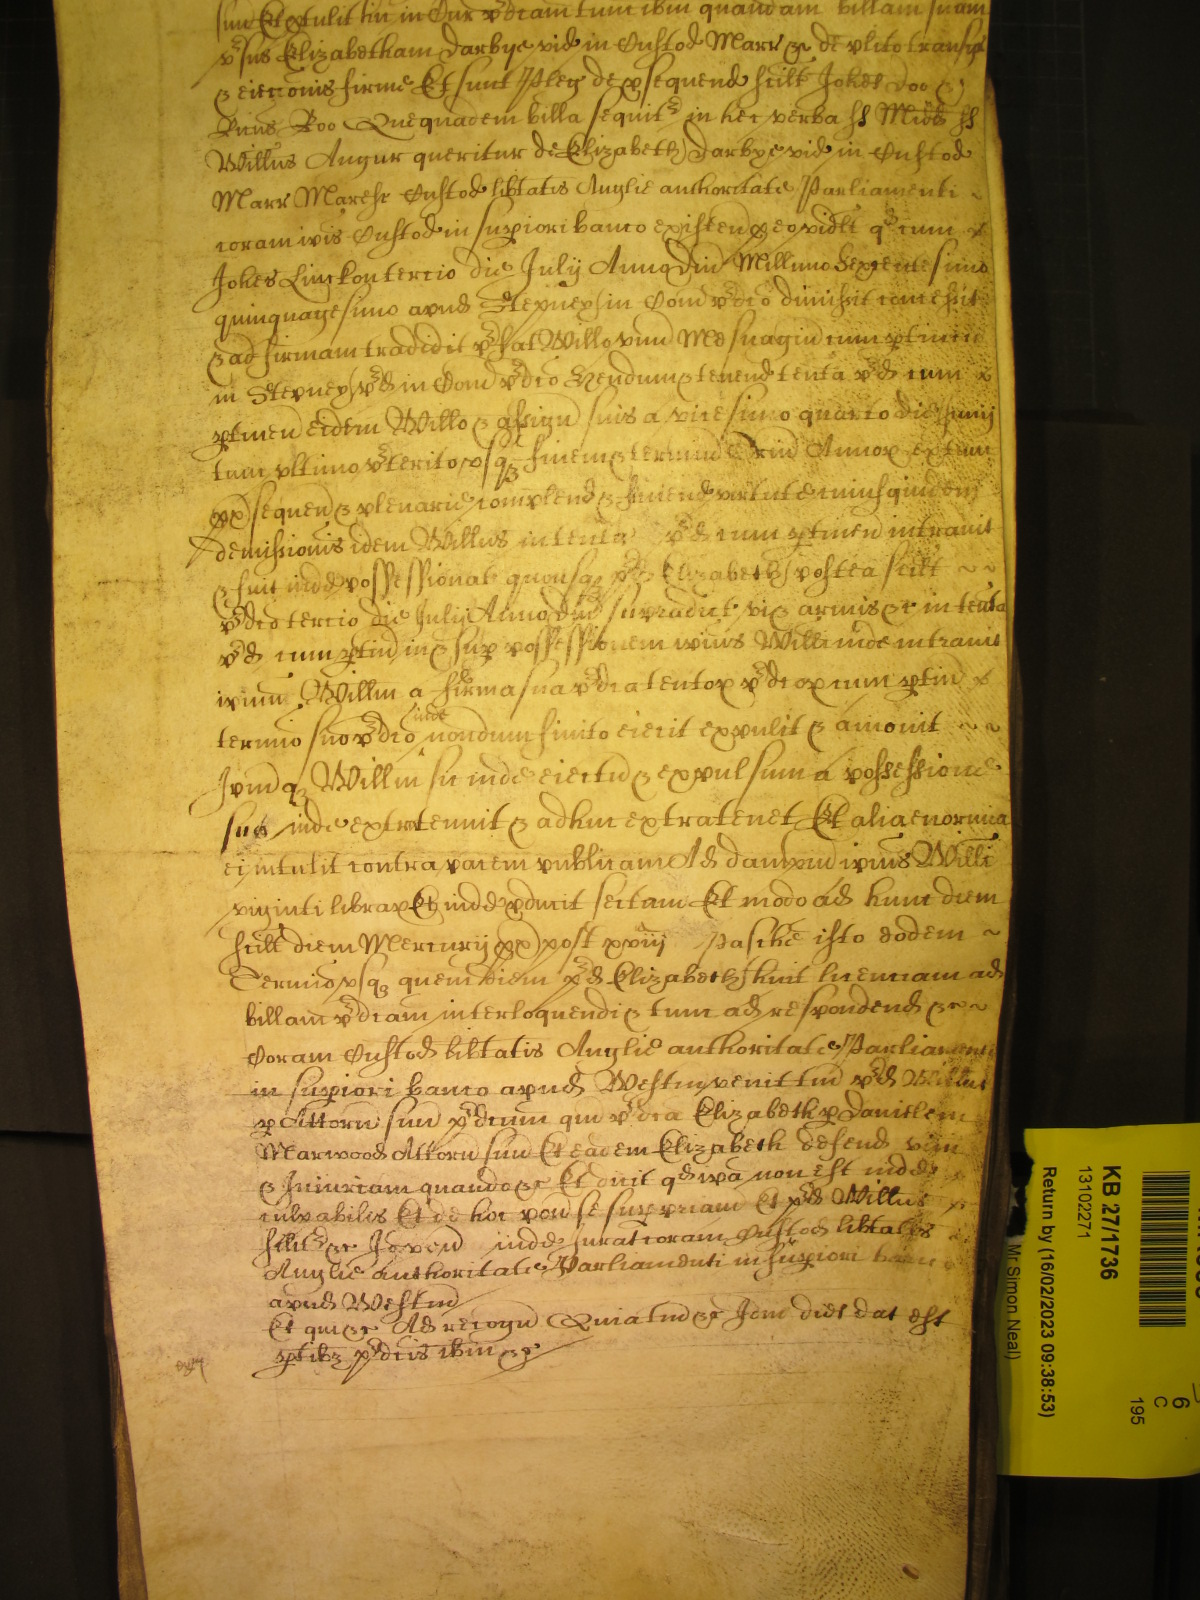 suu Et p̱tulit hic in Cur p̄dcam tunc ibm quandam billam suam
v̄sus Elizabetham Darbye vid in Custod Marr &c de plito transgr
& eiecc̄onis firme Et sunt Pleg de p̱sequend scilt Johes Doo &
Ricus Roo Que quadem billa sequit̄ in hec verba ss Midd ss
Willus Angur queritur de Elizabeth Darbye vid in Custod
Marr Maresc Custod lib̄tatis Anglie authoritate Parliamenti
coram ip̄is Custod in sup̱iori banco existen p̱ eo videlt qd cum
Johes Linckon tercio die Julij Anno Dni Millimo Sexcentesimo
quinquagesimo apud Stepney in Com p̄dco dimisit concessit
& ad firmam tradidit p̄fat Willo unu Mesuagiu cum p̱tinen
in Stepney p̄d in Com p̄dco Hendum & tenend tenta p̄d cum
p̱tinen eidem Willo & assign suis a vicesimo quarto die Junij
tunc ultimo p̄terito usq̱ finem & terminu Trium Annoꝝ extunc
px sequen & plenarie complend & finiend virtute cuiusquidem
demissionis idem Willus in tenta p̄d cum p̱tinen intravit
& fuit inde possessionat quousq̱ p̄d Elizabeth postea scilt
p̄dco tercio die Julij Anno Dni supradict vi & armis &c in tenta
p̄d cum p̱tin in & sup̱ possessionem ip̄ius Willi inde intravit
ip̄um Willm a firma sua p̄dca tentoꝝ p̄dcoꝝ cum p̱tin
termino suo p̄dco inde nondum finito eiecit expulit & amovit
Ip̄umq̱ Willm sic inde eiectu & expulsum a possessione
sua inde extratenuit & adhuc extratenet Et alia enormia
ei intulit contra pacem publicam Ad dampnu ip̄ius Willi
viginti libraꝝ Et inde p̱ducit sectam Et modo ad hunc diem
scilt diem Mercurij px post xviij Pasche isto eodem
Termino usq̱ quem diem p̄d Elizabeth huit licenciam ad
billam p̄dcam interloquendi & tunc ad respondend &c
Coram Custod lib̄tatis Anglie authoritate Parliamenti
in sup̱iori banco apud Westm venit tm p̄d Willus
p̱ Attorn suu p̄dcum qm p̄dca Elizabeth p̱ Danielem
Marwood Attorn suu Et eadem Elizabeth defend vim
& Iniuriam quando &c Et dicit qd ip̄a non est inde
culpabilis Et de hoc pon se sup̱ pr̄iam Et p̄d Willus
silit̄ &c Io ven inde Jurat coram Custod lib̄tatis
Anglie authoritate Parliamenti in sup̱iori banco
apud Westm
Et qui &c Ad recogn Quia tm &c Idm dies dat est
p̱tib̄ p̄dcis ibm &c
KB 27/1736
13102271
Return by (16/02/2023 09:38:53)
Mr Simon Neal)
6
C
195